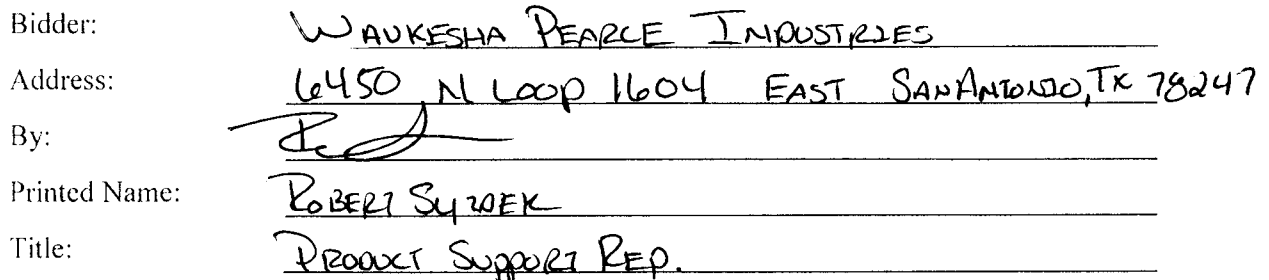 Bidder: WAUKESHA PEARCE INDUSTRIES
Address: 6450 N LOOP 1604 EAST SAN ANTONIO, TX 78247
By:
Printed Name: ROBERT
Title: PRODUCT SUPPORT REP.